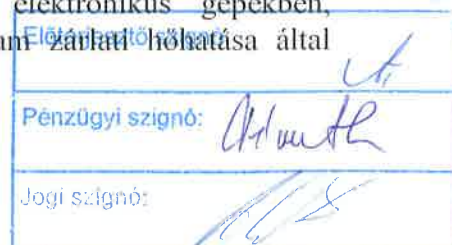 elektronikus gépekben,
zárlati hőhatása által
Előterjesztő szignó:
Pénzügyi szignó:
Jogi szignó: